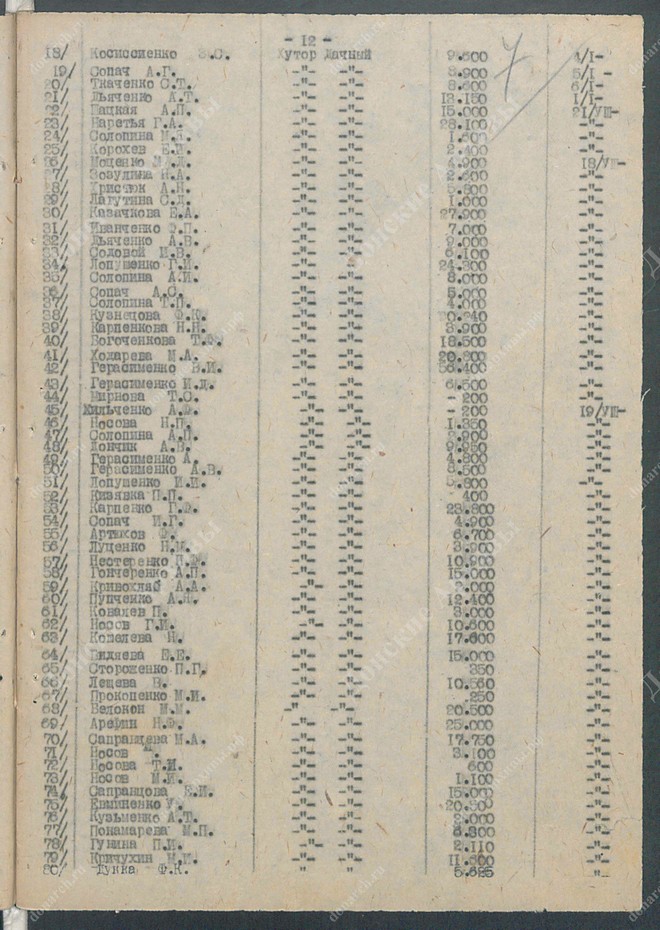 - 12 -
18/ Косиссиенко З.С. Хутор Дачный 9.500 4/I-
19/ Сопач А.Г. -"- -"- 8.900 5/I -
20/ Ткаченко С.Т. -"- -"- 8.600 6/I-
21/ Дьяченко А.Т. -"- -"- 13.150 1/I-
22/ Пацкая А.П. -"- -"- 15.000 21/УШ-
23/ Наретья Г.А. -"- -"- 28.100 -"-
24/ Солопина М.Я. -"- -"- -"-
25/ Корохев Е.И. -"- -"- 2.400 -"-
26/ Моценко -"- -"- 4.900 18/УШ-
27/ Зозулина Н.А. -"- -"- -"-
28/ Христюк А.Н. -"- -"- 5.800 -"-
29/ Лагутина С.Д. -"- -"- 1.000 -"-
30/ Казачкова Е.А. -"- -"- 27.900 -"-
31/ Иванченко -"- -"- 7.000 -"-
32/ Дьяченко А.В. -"- -"- 9.000 -"-
33/ Содовой М.В. -"- -"- 6.100 -"-
34/ Лопушенко Г.И. -"- " 24.300 -"-
35/ Солопина А.И. -"- -"- 8.000 -"-
36/ Сопач А.С. -"- -"- 5.000 -"-
37/ Солопина Т.П. -"- -"- 4.000 -"-
38/ Кузнецова Ф.К. -"- -"- -"-
39/ Карпенкова Н.Н. -"- -"- 3.900 -"-
40/ Богоченкова Т.Ф. -"- -"- 18.500 -"-
41/ Ходарева М.А. -"- -"- 20.800 -"-
42/ Герасименко В.И. -"- -"- 56.400 -"-
43/ Герасименко И.Д. -"- -"- 6.500 -"-
44/ Мирнова Т.С. -"- -"- 200 -"-
45/ Хильченко А.Ф. -"- -"- 200 19/УШ-
46/ Носова Н.П. -"- -"- 1.350 -"-
47/ Солопина А.П. -"- -"- 2.900 -"-
48/ Дончик А.В. -"- -"- 9.950 -"-
49/ Герасименко А. -"- -"- 4.800 -"-
50/ Герасименко А.В. -"- -"- 8.500 -"-
51/ Лопушенко И.И. -"- -"- 5.800 -"-
52/ Кизявка П.П. -"- -"- 400 -"-
53/ Карпенко Г.Ф. -"- -"- 23.800 -"-
54/ Сопач И.Г. -"- -"- 4.900 -"-
55/ Артюхов -"- -"- 6.700 -"-
56/ Луценко Н.М. -"- -"- 3.900 -"-
57/ Нестеренко П.Ф. -"- -"- 10.900 -"-
58/ Гончеренко А.П. -"- -"- 15.000 -"-
59/ Кривохляб А.А. -"- -"- 2.000 -"-
60/ Пупченко А.Я. -"- -"- 12.400 -"-
61/ Ковалев П. -"- -"- 3.000 -"-
62/ Носов Г.И. -"- -"- 10.600 -"-
63/ Копелева Н. -"- -"- 17.600 -"-
64/ Видяева Е.Е. -"- -"- 15.000 -"-
65/ Стороженко П.Г. -"- -"- 350 -"-
66/ Лещева В. -"- -"- 10.560 -"-
67/ Прокопенко М.И. -"- -"- 250 -"-
68/ Велокон М.М. -" -"- 20.500 -"-
69/ Арефин Н.Ф. -"- -"- 25.000 -"-
70/ Сапранцева М.А. -"- -"- 17.750 -"-
71/ Носов -"- -"- 3.100 -"-
72/ Носова Т.И. -"- -"- 600 -"-
73/ Носов М.И. -"- -"- 1.100 -"-
74/ Сапранцова Е.И. -"- -"- 15.000 -"-
75/ Евминенко У. -"- -"- 20.500 -"-
76/ Кузьменко А.Т. -"- -"- 2.000 -"-
77/ Понамарева М.П. -"- -"- 6.300 -"-
78/ Гунина П.И. -"- -"- 2.110 -"-
79/ Кричухин М.И. -"- -"- 11.600 -"-
80/ Дукка Ф.К. " " 5.625 -"-
7